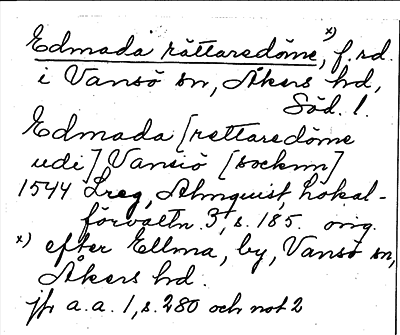 Edmada rättaredöme, x) f. rd.
i Vansö sn, Åkers hd,
Söd. l.
Edmada [rettaredöme
udi] Vansiö [socknn]
1544 Lreg, Almquist, Lokal-
förvaltn. 3, s. 185. orig.
x) efter Ellma, by, Vansö sn,
Åkers hd.
jfr a.a. 1, s. 280 och not 2